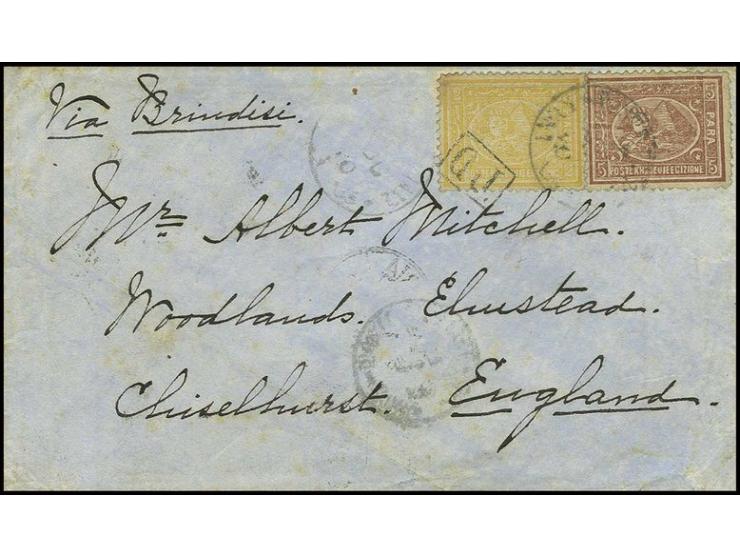 Via Brindisi.
PD
5 PARA 5
POSTE KHEDEUIE EGIZIANE
Mr Albert Mitchell.
Woodlands. Elmstead.
Chiselhurst. England.